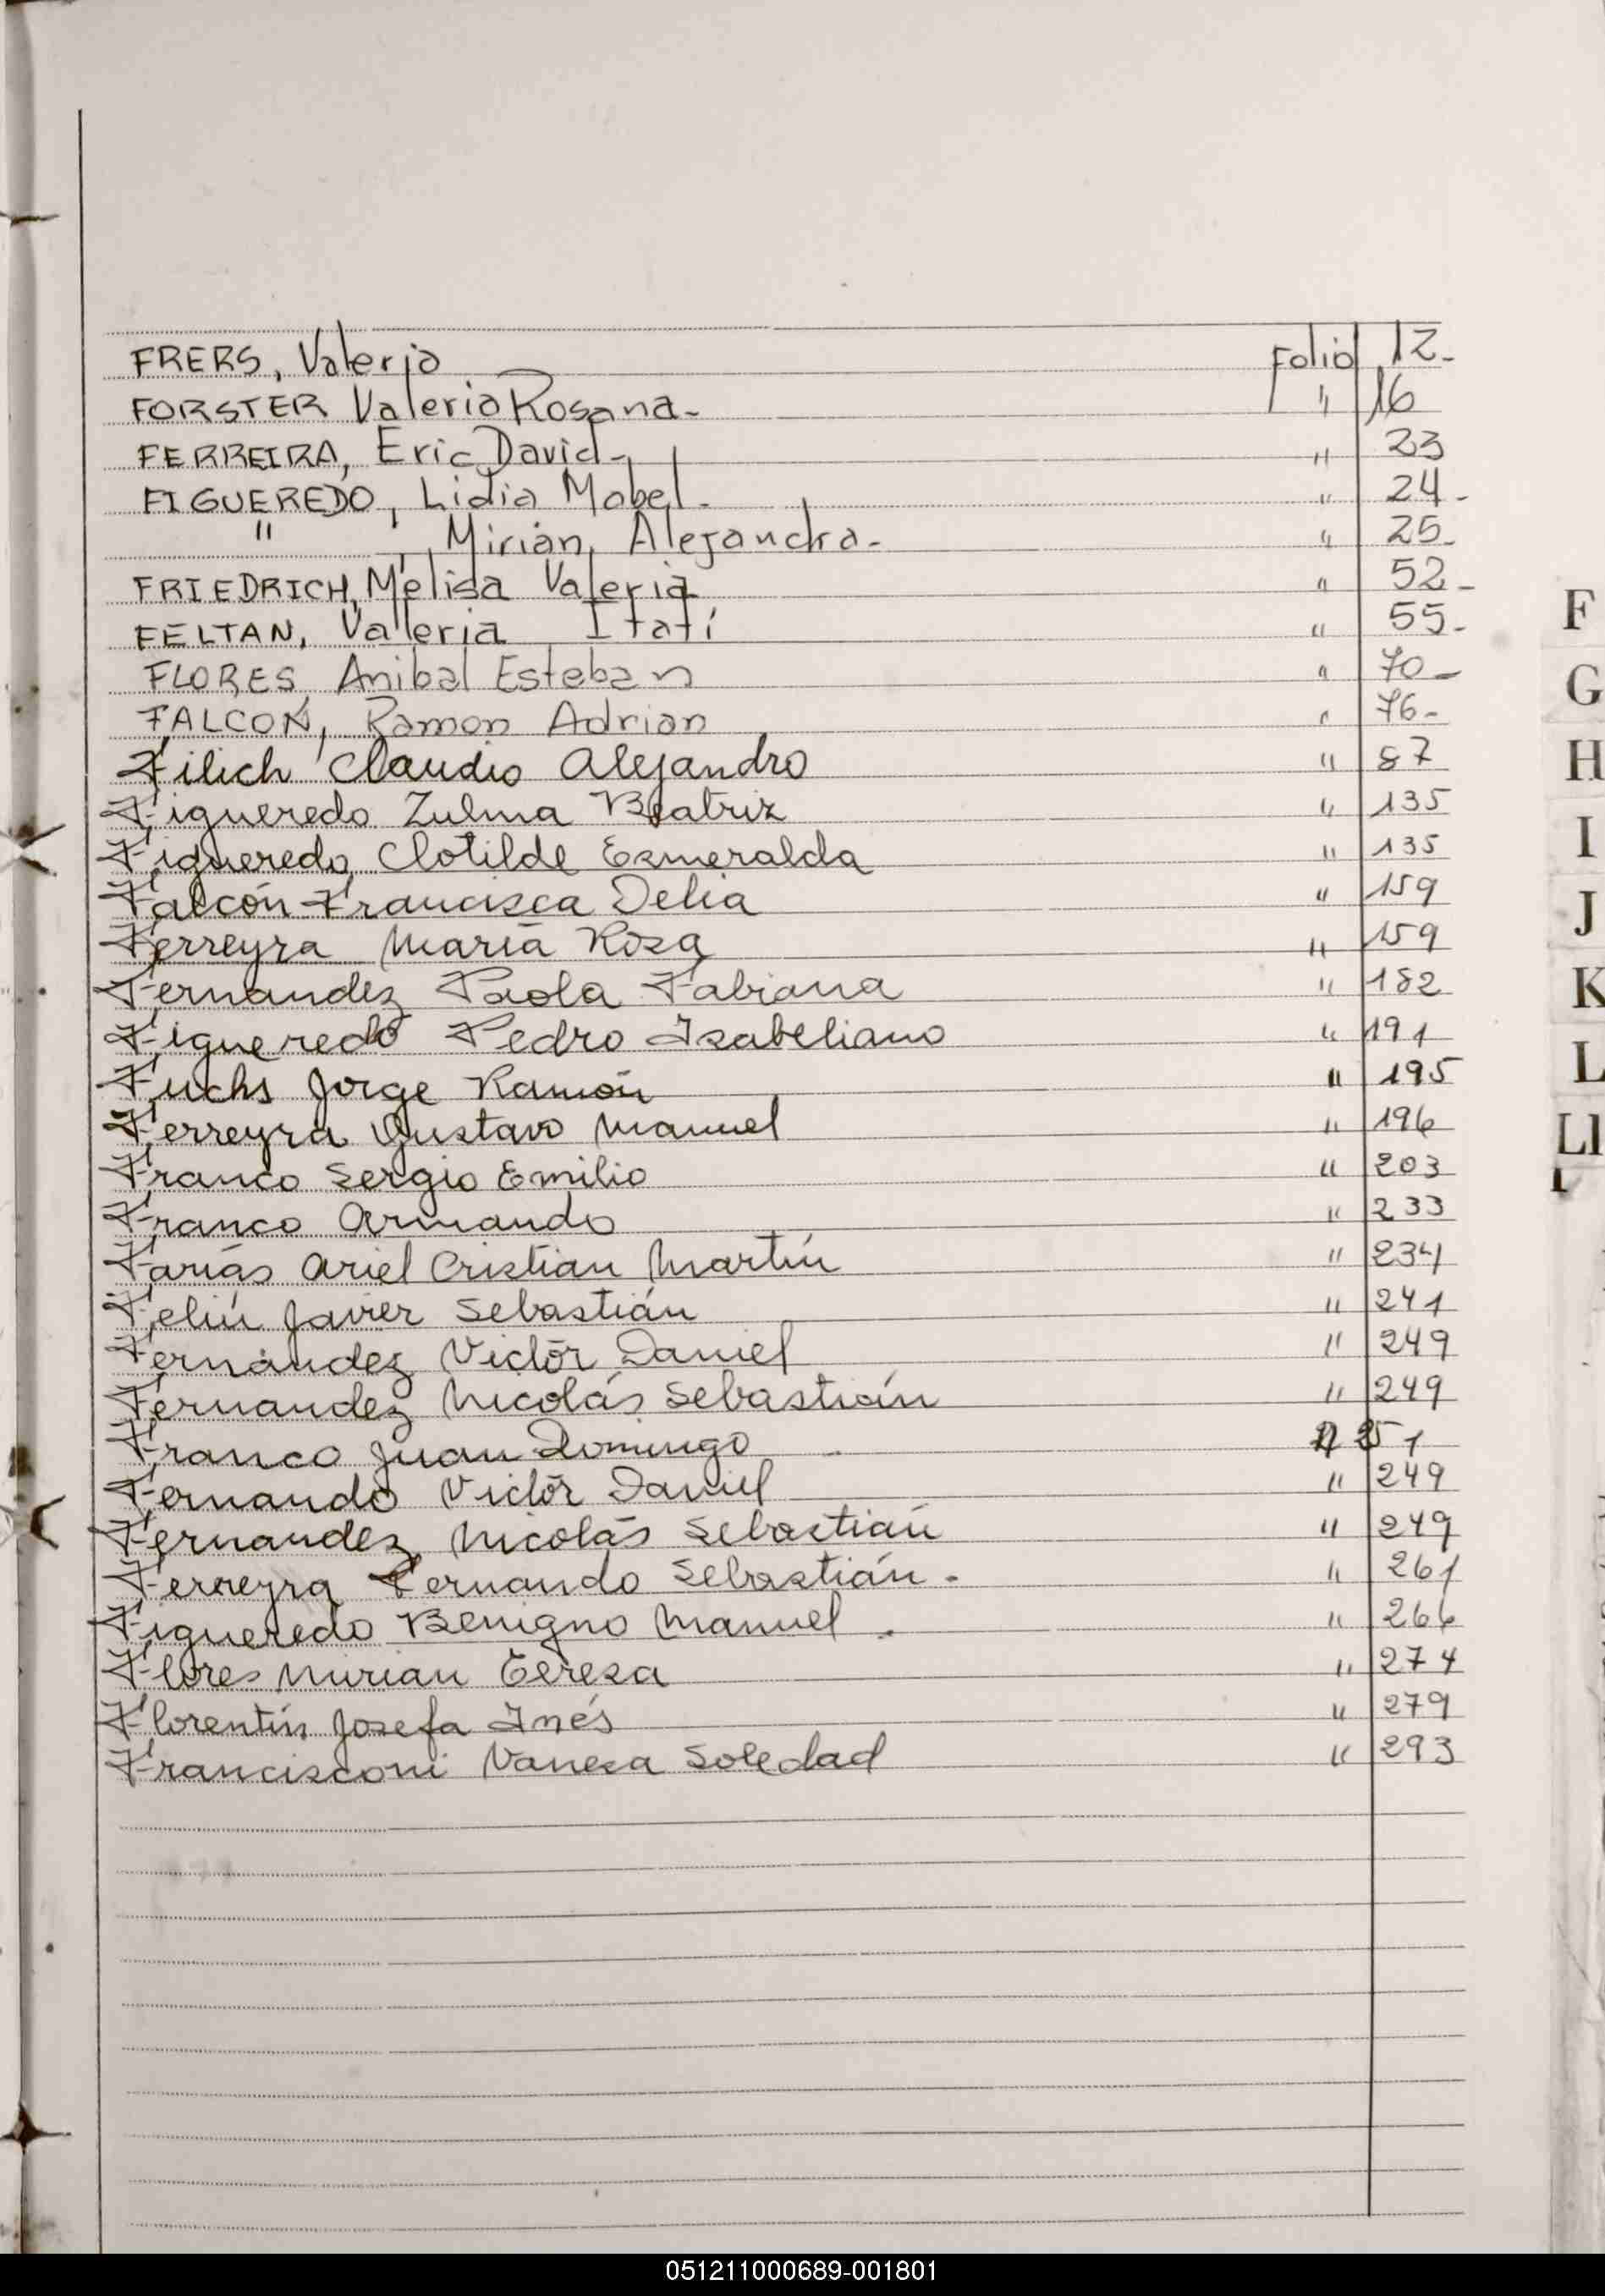 FRERS, Valeria Folio 12-
FORSTER Valeria Rosana- " 16
FERREIRA, Eric David- " 23
FIGUEREDO, Lidia Mabel- " 24-
" , Mirian Alejandra- " 25-
FRIEDRICH, Melisa Valeria " 52-
FELTAN, Valeria Itatí " 55-
FLORES, Anibal Esteban " 70-
FALCON, Ramon Adrian " 76-
Filich Claudio Alejandro " 87
Figueredo Zulma Beatriz " 135
Figueredo Clotilde Esmeralda " 135
Falcón Francisca Delia " 159
Ferreyra María Rosa " 159
Fernandez Paola Fabiana " 182
Figueredo Pedro Isabeliano " 191
Fuchs Jorge Ramón " 195
Ferreyra Gustavo Manuel " 196
Franco Sergio Emilio " 203
Franco Armando " 233
Farías Ariel Cristian Martín " 234
Feliú Javier Sebastián " 241
Fernández Victór Daniel " 249
Fernandez Nicolás Sebastián " 249
Franco Juan Domingo 251
Fernando Victór Daniel " 249
Fernandez Nicolás Sebastián " 249
Ferreyra Fernando Sebastián. " 261
Figueredo Benigno Manuel. " 266
Flores Mirian Teresa " 274
Florentín Josefa Inés " 279
Francisconi Vanesa Soledad " 293
F
G
H
I
J
K
L
Ll
051211000689-001801